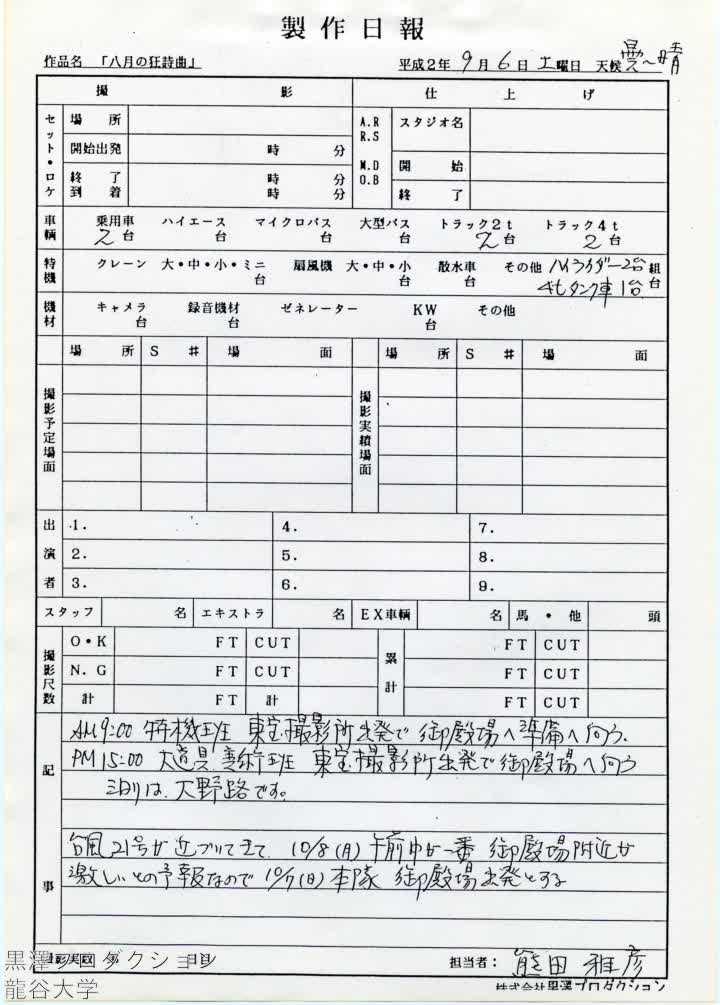 製作日報
作品名 「八月の狂詩曲」 平成2年 9月 6日 土曜日 天候 曇〜晴
撮 影 仕 上 げ
セット・ロケ 場 所 A.R R.S M.D O.B スタジオ名
開始出発 時 分 開 始
終了到着 時 分 時 分 終 了
車輌 乗用車 2台 ハイエース 台 マイクロバス 台 大型バス 台 トラック2t 2台 トラック4t 2台
特機 クレーン 大・中・小・ミニ 台 扇風機 大・中・小 台 散水車 台 その他 ハイライダー2台 組 台
4tタンク車1台
機材 キャメラ 台 録音機材 台 ゼネレーター KW 台 その他
場 所 S # 場 面 場 所 S # 場 面
撮影予定場面 撮影実績場面
出演者 1. 4. 7.
2. 5. 8.
3. 6. 9.
スタッフ 名 エキストラ 名 EX車輌 名 馬・他 頭
撮影尺数 O・K FT CUT 累計 FT CUT
N.G FT CUT FT CUT
計 FT 計 FT CUT
記事
AM9:00 特機班 東宝撮影所出発で 御殿場へ準備へ向う.
PM15:00 大道具 美術班 東宝撮影所出発で御殿場へ向う
泊りは、大野路です。
台風21号が近づいてきて、10/8(月)午前中が一番 御殿場附近が
激しいとの予報なので 10/7(日)本隊 御殿場出発とする
撮影実数 日目
担当者: 熊田雅彦
株式会社黒澤プロダクション
黒澤プロダクション
龍谷大学